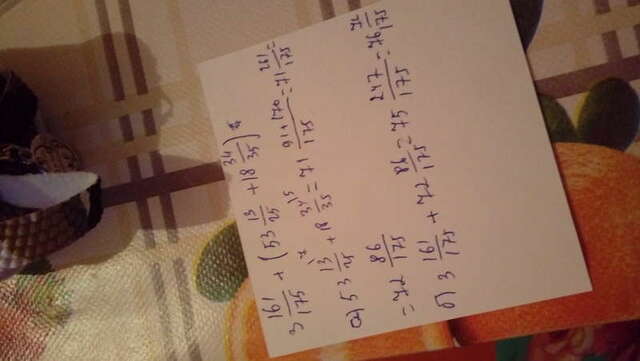 3 161/175 + (53 13/25 + 18 34/35) =
а) 53 13/25 \7 + 18 34/35 \5 = 71 91+170/175 = 71 261/175 =
= 72 86/175
б) 3 161/175 + 72 86/175 = 75 247/175 = 76 72/175